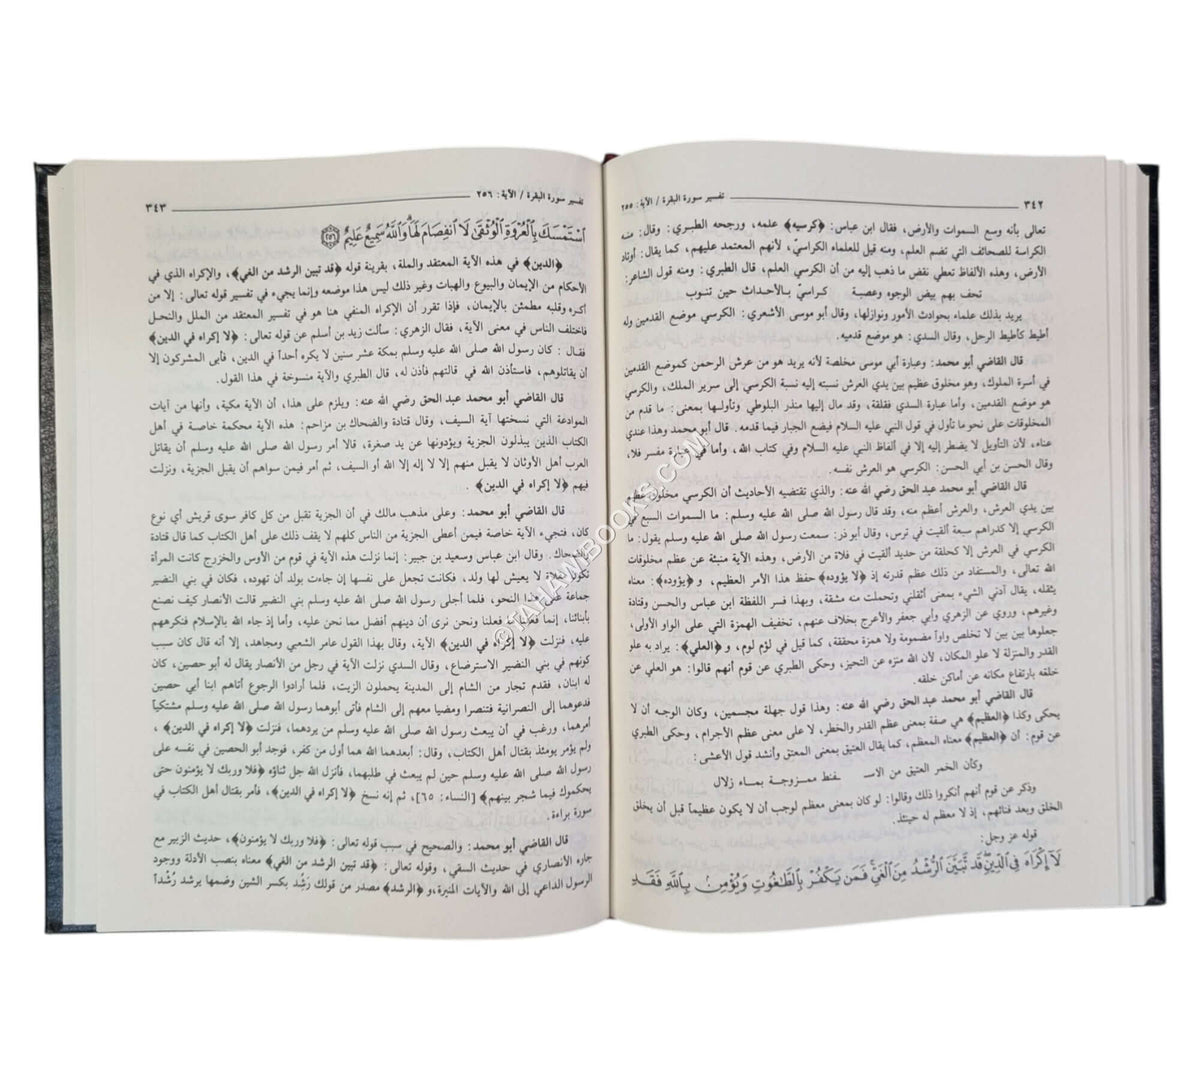 ٣٤٢
تفسير سورة البقرة / الآية: ٢٥٥
تعالى بأنه وسع السموات والأرض، فقال ابن عباس: ﴿كرسيه﴾ علمه، ورجحه الطبري: وقال: منه
الكراسة للصحائف التي تضم العلم، ومنه قيل للعلماء الكراسيّ، لأنهم المعتمد عليهم، كما يقال: أوتاد
الأرض، وهذه الألفاظ تعطي نقض ما ذهب إليه من أن الكرسي العلم، قال الطبري: ومنه قول الشاعر:
تحف بهم بيض الوجوه وعصبة كراسيّ بالأحداث حين تنوب
يريد بذلك علماء بحوادث الأمور ونوازلها، وقال أبو موسى الأشعري: الكرسي موضع القدمين وله
أطيط كأطيط الرحل، وقال السدي: هو موضع قدميه.
قال القاضي أبو محمد: وعبارة أبي موسى مخلصة لأنه يريد هو من عرش الرحمن كموضع القدمين
في أسرة الملوك، وهو مخلوق عظيم بين يدي العرش نسبته إليه نسبة الكرسي إلى سرير الملك، والكرسي
هو موضع القدمين، وأما عبارة السدي فقلقة، وقد مال إليها منذر البلوطي وتأولها بمعنى: ما قدم من
المخلوقات على نحو ما تأول في قول النبي عليه السلام فيضع الجبار فيما قدمه. قال أبو محمد وهذا عندي
عناء، لأن التأويل لا يضطر إليه إلا في ألفاظ النبي عليه السلام وفي كتاب الله، وأما في عبارة مفسر فلا،
وقال الحسن بن أبي الحسن: الكرسي هو العرش نفسه.
قال القاضي أبو محمد عبد الحق رضي الله عنه: والذي تقتضيه الأحاديث أن الكرسي مخلوق عظم
بين يدي العرش، والعرش أعظم منه، وقد قال رسول الله صلى الله عليه وسلم: ما السموات السبع في
الكرسي إلا كدراهم سبعة ألقيت في ترس، وقال أبو ذر: سمعت رسول الله صلى الله عليه وسلم يقول: ما
الكرسي في العرش إلا كحلقة من حديد ألقيت في فلاة من الأرض، وهذه الآية منبئة عن عظم مخلوقات
الله تعالى، والمستفاد من ذلك عظم قدرته إذ ﴿لا يؤده﴾ حفظ هذا الأمر العظيم، و ﴿يؤوده﴾: معناه
يثقله، يقال آدني الشيء بمعنى أثقلني وتحملت منه مشقة، وبهذا فسر اللفظة ابن عباس والحسن وقتادة
وغيرهم، وروي عن الزهري وأبي جعفر والأعرج بخلاف عنهم، تخفيف الهمزة التي على الواو الأولى،
جعلوها بين بين لا تخلص واواً مضمومة ولا همزة محققة، كما قيل في لؤم لوم، و ﴿العلي﴾: يراد به علو
القدر والمنزلة لا علو المكان، لأن الله منزه عن التحيز، وحكى الطبري عن قوم أنهم قالوا: هو العلي عن
خلقه بارتفاع مكانه عن أماكن خلقه.
قال القاضي أبو محمد عبد الحق رضي الله عنه: وهذا قول جهلة مجسمين، وكان الوجه أن لا
يحكى وكذا ﴿العظيم﴾ هي صفة بمعنى عظم القدر والخطر، لا على معنى عظم الأجرام، وحكى الطبري
عن قوم: أن ﴿العظيم﴾ معناه المعظم، كما يقال العتيق بمعنى المعتق وأنشد قول الأعشى:
وكأن الخمر العتيق من الاسـ ـفنط ممزوجة بماء زلال
وذكر عن قوم أنهم أنكروا ذلك وقالوا: لو كان بمعنى معظم لوجب أن لا يكون عظيماً قبل أن يخلق
الخلق وبعد فنائهم، إذ لا معظم له حينئذ.
قوله عز وجل:
لَا إِكْرَاهَ فِي الدِّينِ قَد تَّبَيَّنَ الرُّشْدُ مِنَ الْغَيِّ فَمَن يَكْفُرْ بِالطَّاغُوتِ وَيُؤْمِن بِاللَّهِ فَقَدِ
تفسير سورة البقرة / الآية: ٢٥٦
٣٤٣
اسْتَمْسَكَ بِالْعُرْوَةِ الْوُثْقَىٰ لَا انفِصَامَ لَهَا وَاللَّهُ سَمِيعٌ عَلِيمٌ ٢٥٦
﴿الدين﴾ في هذه الآية المعتقد والملة، بقرينة قوله ﴿قد تبين الرشد من الغي﴾، والإكراه الذي في
الأحكام من الإيمان والبيوع والهبات وغير ذلك ليس هذا موضعه وإنما يجيء في تفسير قوله تعالى: إلا من
أكره وقلبه مطمئن بالإيمان، فإذا تقرر أن الإكراه المنفي هنا هو في تفسير المعتقد من الملل والنحل
فاختلف الناس في معنى الآية، فقال الزهري: سألت زيد بن أسلم عن قوله تعالى: ﴿لا إكراه في الدين﴾
فقال: كان رسول الله صلى الله عليه وسلم بمكة عشر سنين لا يكره أحداً في الدين، فأبى المشركون إلا
أن يقاتلوهم، فاستأذن الله في قتالهم فأذن له، قال الطبري والآية منسوخة في هذا القول.
قال القاضي أبو محمد عبد الحق رضي الله عنه: ويلزم على هذا، أن الآية مكية، وأنها من آيات
الموادعة التي نسختها آية السيف، وقال قتادة والضحاك بن مزاحم: هذه الآية محكمة خاصة في أهل
الكتاب الذين يبذلون الجزية ويؤدونها عن يد صغرة، قالا أمر رسول الله صلى الله عليه وسلم أن يقاتل
العرب أهل الأوثان لا يقبل منهم إلا لا إله إلا الله أو السيف، ثم أمر فيمن سواهم أن يقبل الجزية، ونزلت
فيهم ﴿لا إكراه في الدين﴾.
قال القاضي أبو محمد: وعلى مذهب مالك في أن الجزية تقبل من كل كافر سوى قريش أي نوع
كان، فتجيء الآية خاصة فيمن أعطى الجزية من الناس كلهم لا يقف ذلك على أهل الكتاب كما قال قتادة
والضحاك. وقال ابن عباس وسعيد بن جبير: إنما نزلت هذه الآية في قوم من الأوس والخزرج كانت المرأة
تكون مقلاة لا يعيش لها ولد، فكانت تجعل على نفسها إن جاءت بولد أن تهوده، فكان في بني النضير
جماعة على هذا النحو، فلما أجلى رسول الله صلى الله عليه وسلم بني النضير قالت الأنصار كيف نصنع
بأبنائنا، إنما فعلنا ما فعلنا ونحن نرى أن دينهم أفضل مما نحن عليه، وأما إذ جاء الله بالإسلام فنكرههم
عليه، فنزلت ﴿لا إكراه في الدين﴾ الآية، وقال بهذا القول عامر الشعبي ومجاهد، إلا أنه قال كان سبب
كونهم في بني النضير الاسترضاع، وقال السدي نزلت الآية في رجل من الأنصار يقال له أبو حصين، كان
له ابنان، فقدم تجار من الشام إلى المدينة يحملون الزيت، فلما أرادوا الرجوع أتاهم ابنا أبي حصين
فدعوهما إلى النصرانية فتنصرا ومضيا معهم إلى الشام فأتى أبوهما رسول الله صلى الله عليه وسلم مشتكياً
أمرهما، ورغب في أن يبعث رسول الله صلى الله عليه وسلم من يردهما، فنزلت ﴿لا إكراه في الدين﴾،
ولم يؤمر يومئذ بقتال أهل الكتاب، وقال: أبعدهما الله هما أول من كفر، فوجد أبو الحصين في نفسه على
رسول الله صلى الله عليه وسلم حين لم يبعث في طلبهما، فأنزل الله جل ثناؤه ﴿فلا وربك لا يؤمنون حتى
يحكموك فيما شجر بينهم﴾ [النساء: ٦٥]، ثم إنه نسخ ﴿لا إكراه في الدين﴾، فأمر بقتال أهل الكتاب في
سورة براءة.
قال القاضي أبو محمد: والصحيح في سبب قوله تعالى: ﴿فلا وربك لا يؤمنون﴾، حديث الزبير مع
جاره الأنصاري في حديث السقي، وقوله تعالى: ﴿قد تبين الرشد من الغي﴾ معناه بنصب الأدلة ووجود
الرسول الداعي إلى الله والآيات المنيرة، و ﴿الرشد﴾ مصدر من قولك رَشِد بكسر الشين وضمها يرشد رُشْداً
©TAHAWIBOOKS.COM